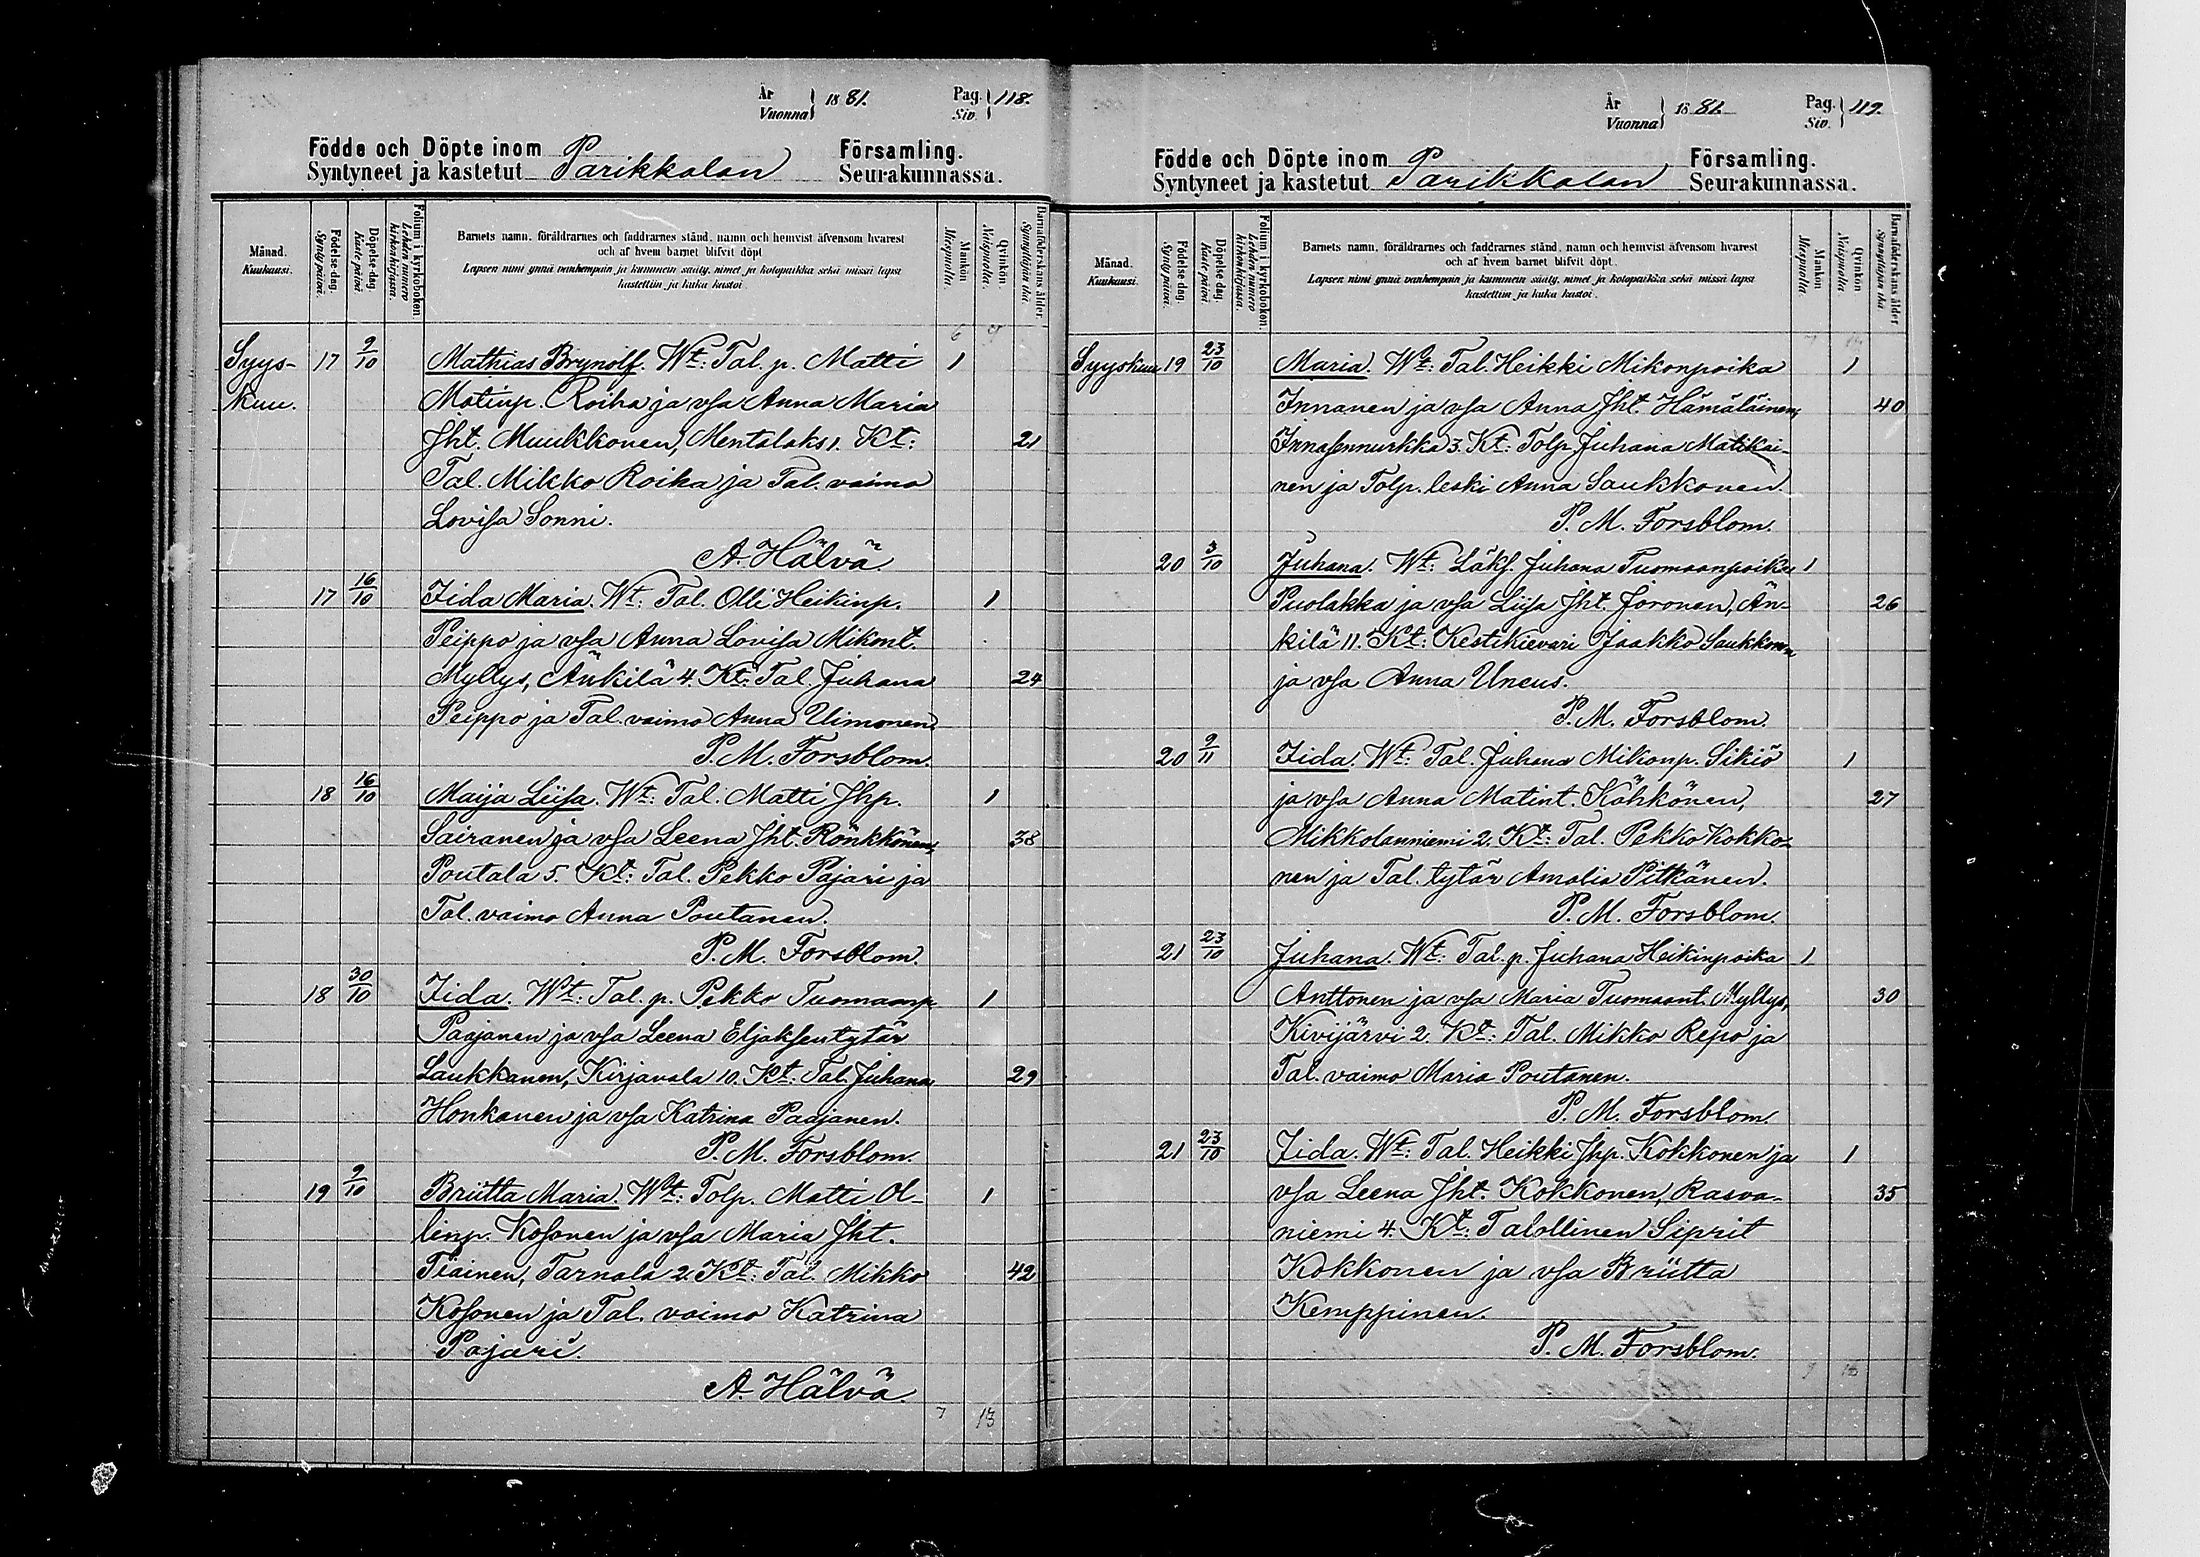 År
Vuonna } 1881. Pag. Siv. } 118.
Födde och Döpte inom Parikkalan Församling.
Syntyneet ja kastetut Seurakunnassa.
Månad. Kuukausi.
Födelse-dag. Synty päivä.
Döpelse-dag. Kaste päivä.
Folium i kyrkoboken Lehden numero kirkonkirjassa.
Barnets namn, föräldrarnes och faddrarnes stånd, namn och hemvist äfvensom hvarest
och af hvem barnet blifvit döpt
Lapsen nimi ynnä vanhempain ja kummein sääty, nimet ja kotopaikka sekä missä lapsi
kastettiin ja kuka kastoi.
Mankön Miespuolia.
Qvinkön Naispuolia.
Barnaföderskans ålder Synnyttäjän ikä.
6
Syys- 17 9/10 Mathias Brynolf. Wt: Tal. p. Matti 1
kuu. Matinp. Roiha ja vsa Anna Maria
Jht. Muukkonen, Mentalaks 1. Kt: 21
Tal. Mikko Roiha ja Tal. vaimo
Lovisa Sonni.
A. Hälvä
17 16/10 Iida Maria. Wt: Tal. Olli Heikinp. 1
Peippo ja vsa Anna Lovisa Mikont.
Myllys, Änkilä 4. Kt: Tal. Juhana 24
Peippo ja Tal. vaimo Anna Uimonen
P. M. Forsblom.
18 16/10 Maija Liisa. Wt: Tal. Matti Jhp. 1
Sairanen ja vsa Leena Jht. Rönkkönen, 38
Poutala 5. Kt: Tal. Pekko Pajari ja
Tal. vaimo Anna Poutanen.
P. M. Forsblom.
18 30/10 Iida. Wt: Tal. p. Pekko Tuomaanp 1
Paajanen ja vsa Leena Eljaksentytär
Laukkanen, Kirjavala 10. Kt: Tal. Juhana 29
Honkanen ja vsa Katrina Paajanen.
P. M. Forsblom.
19 9/10 Briitta Maria. Wt: Tolp. Matti Ol- 1
linp. Kosonen ja vsa Maria Jht.
Tiainen, Tarnala 2. Kt: Tal. Mikko 42
Kosonen ja Tal. vaimo Katrina
Pajari.
A. Hälvä.
7 13
År
Vuonna } 1881. Pag. Siv. } 119.
Födde och Döpte inom Parikkalan Församling.
Syntyneet ja kastetut Seurakunnassa.
Månad. Kuukausi.
Födelse-dag. Synty päivä.
Döpelse-dag. Kaste päivä.
Folium i kyrkoboken Lehden numero kirkonkirjassa.
Barnets namn, föräldrarnes och faddrarnes stånd, namn och hemvist äfvensom hvarest
och af hvem barnet blifvit döpt.
Lapsen nimi ynnä vanhempain ja kummein sääty, nimet ja kotopaikka sekä missä lapsi
kastettiin ja kuka kastoi.
Mankön Miespuolia.
Qvinkön Naispuolia.
Barnaföderskans ålder Synnyttäjän ikä.
Syyskuu 19 23/10 Maria. Wt: Tal. Heikki Mikonpoika 1
Innanen ja vsa Anna Jht. Hämäläinen, 40
Innasennurkka 3. Kt: Tolp. Juhana Matikai-
nen ja Tolp. leski Anna Saukkonen.
P. M. Forsblom.
20 3/10 Juhana. Wt: Läks. Juhana Tuomaanpoika 1
Puolakka ja vsa Liisa Jht. Joronen, Än- 26
kilä 11. Kt: Kestikievari Jaakko Saukkonen
ja vsa Anna Uneus.
P. M. Forsblom.
20 9/11 Iida. Wt: Tal. Juhana Mikonp. Sikiö 1
ja vsa Anna Matint. Kähkönen, 27
Mikkolanniemi 2. Kt: Tal. Pekko Kokko-
nen ja Tal. tytär Amalia Pitkänen.
P. M. Forsblom.
21 23/10 Juhana. Wt: Tal. p. Juhana Heikinpoika 1
Anttonen ja vsa Maria Tuomaant. Myllys, 30
Kivijärvi 2. Kt: Tal. Mikko Repo ja
Tal. vaimo Maria Poutanen.
P. M. Forsblom.
21 23/10 Iida. Wt: Tal. Heikki Jhp. Kokkonen ja 1
vsa Leena Jht. Kokkonen, Rasva- 35
niemi 4. Kt: Talollinen Siprit
Kokkonen ja vsa Briitta
Kemppinen.
P. M. Forsblom.